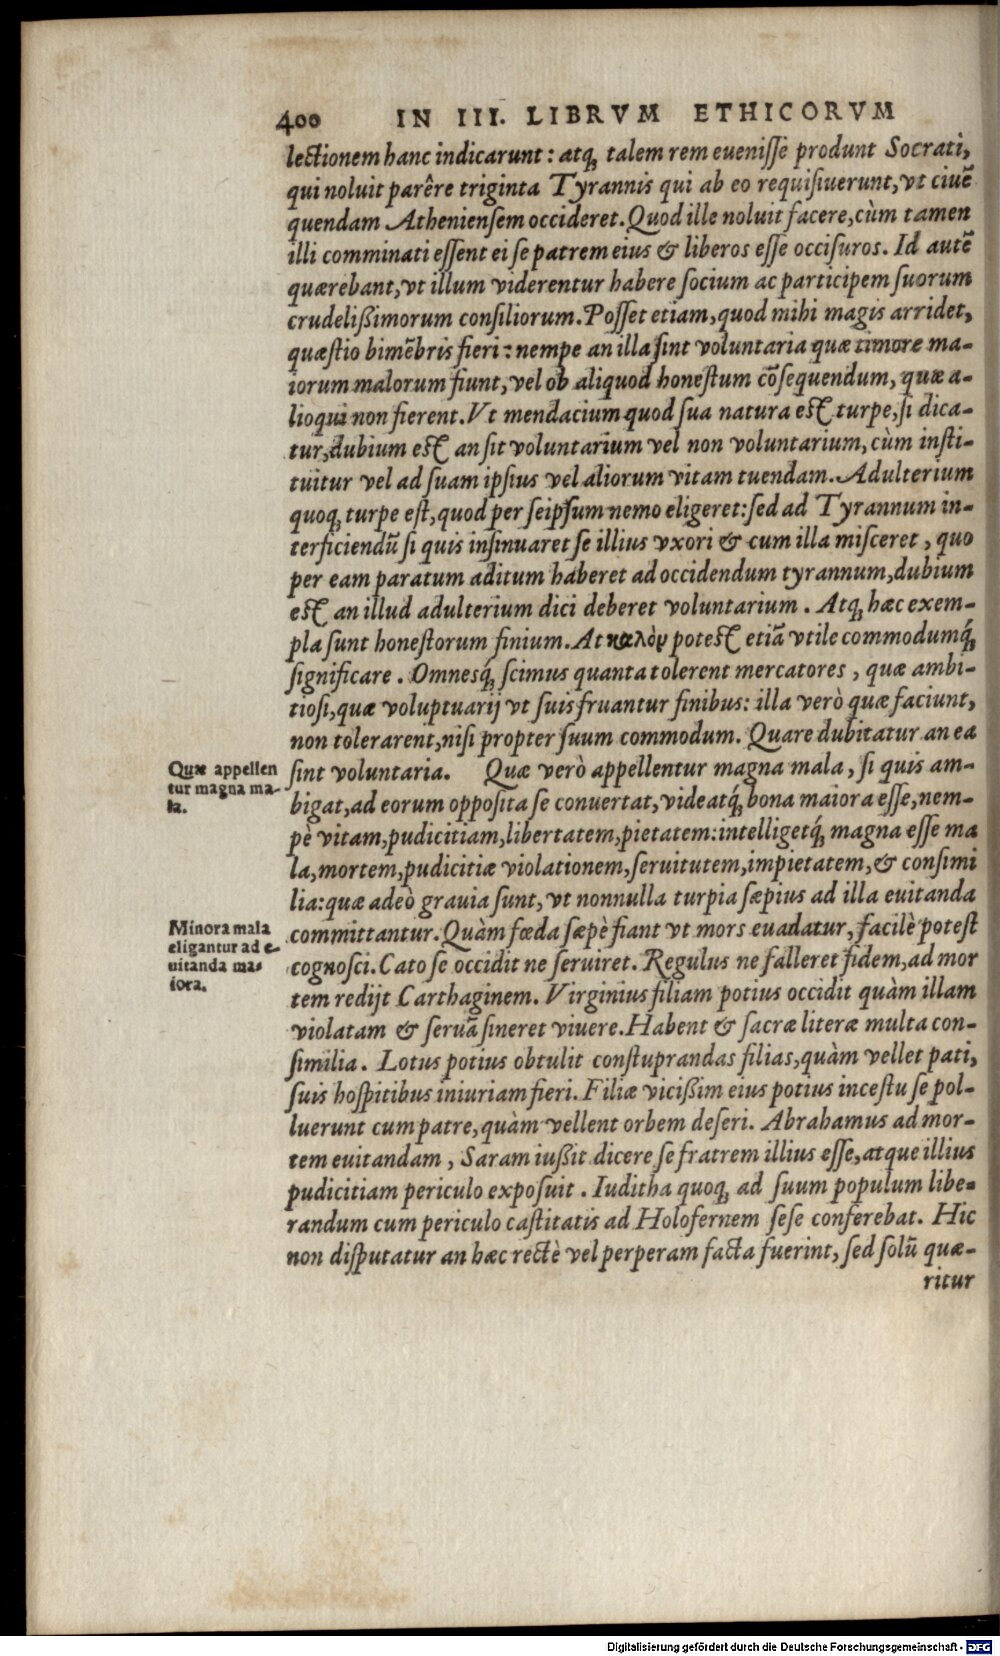 400 IN III. LIBRVM ETHICORVM
lectionem hanc indicarunt: atq́; talem rem eueniſſe produnt Socrati,
qui noluit parêre triginta Tyrannis qui ab eo requiſiuerunt, vt ciuẽ
quendam Athenienſem occideret. Quod ille noluit facere, cùm tamen
illi comminati eſſent ei ſe patrem eius & liberos eſſe occiſuros. Id autẽ
quærebant, vt illum viderentur habere ſocium ac participem ſuorum
crudelißimorum conſiliorum. Poſſet etiam, quod mihi magis arridet,
quæſtio bimẽbris fieri: nempe an illa ſint voluntaria quæ timore ma-
iorum malorum fiunt, vel ob aliquod honeſtum cõſequendum, quæ a-
lioqui non fierent. Vt mendacium quod ſua natura eſt turpe, ſi dica-
tur, dubium eſt an ſit voluntarium vel non voluntarium, cùm inſti-
tuitur vel ad ſuam ipſius vel aliorum vitam tuendam. Adulterium
quoq; turpe eſt, quod per ſeipſum nemo eligeret: ſed ad Tyrannum in-
terficiendũ ſi quis inſinuaret ſe illius vxori & cum illa miſceret, quo
per eam paratum aditum haberet ad occidendum tyrannum, dubium
eſt an illud adulterium dici deberet voluntarium. Atq; hæc exem-
pla ſunt honeſtorum finium. At καλὸν poteſt etiã vtile commodumq́;
ſignificare. Omnesq́; ſcimus quanta tolerent mercatores, quæ ambi-
tioſi, quæ voluptuarij vt ſuis fruantur finibus: illa verò quæ faciunt,
non tolerarent, niſi propter ſuum commodum. Quare dubitatur an ea
ſint voluntaria. Quæ verò appellentur magna mala, ſi quis am-
bigat, ad eorum oppoſita ſe conuertat, videatq́; bona maiora eſſe, nem-
pè vitam, pudicitiam, libertatem, pietatem: intelligetq́; magna eſſe ma
la, mortem, pudicitiæ violationem, ſeruitutem, impietatem, & conſimi
lia: quæ adeò grauia ſunt, vt nonnulla turpia ſæpius ad illa euitanda
committantur. Quàm fœda ſæpè fiant vt mors euadatur, facilè poteſt
cognoſci. Cato ſe occidit ne ſeruiret. Regulus ne falleret fidem, ad mor
tem redijt Carthaginem. Virginius filiam potius occidit quàm illam
violatam & ſeruã ſineret viuere. Habent & ſacræ literæ multa con-
ſimilia. Lotus potius obtulit conſtuprandas filias, quàm vellet pati,
ſuis hoſpitibus iniuriam fieri. Filiæ vicißim eius potius inceſtu ſe pol-
luerunt cum patre, quàm vellent orbem deſeri. Abrahamus ad mor-
tem euitandam, Saram iußit dicere ſe fratrem illius eſſe, atque illius
pudicitiam periculo expoſuit. Iuditha quoq; ad ſuum populum libe-
randum cum periculo caſtitatis ad Holofernem ſeſe conferebat. Hic
non diſputatur an hæc rectè vel perperam facta fuerint, ſed ſolũ quæ-
ritur
Quæ appellen
tur magna ma-
la.
Minora mala
eligantur ad e-
uitanda ma-
iora.
Digitalisierung gefördert durch die Deutsche Forschungsgemeinschaft - DFG